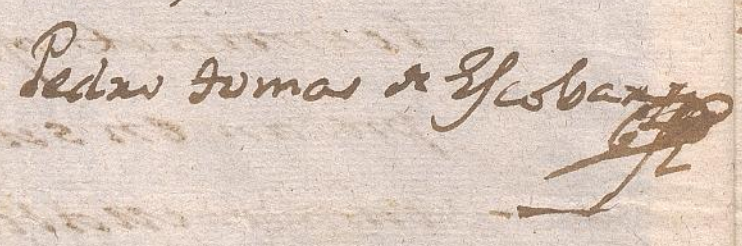 Pedro tomas de Escobar